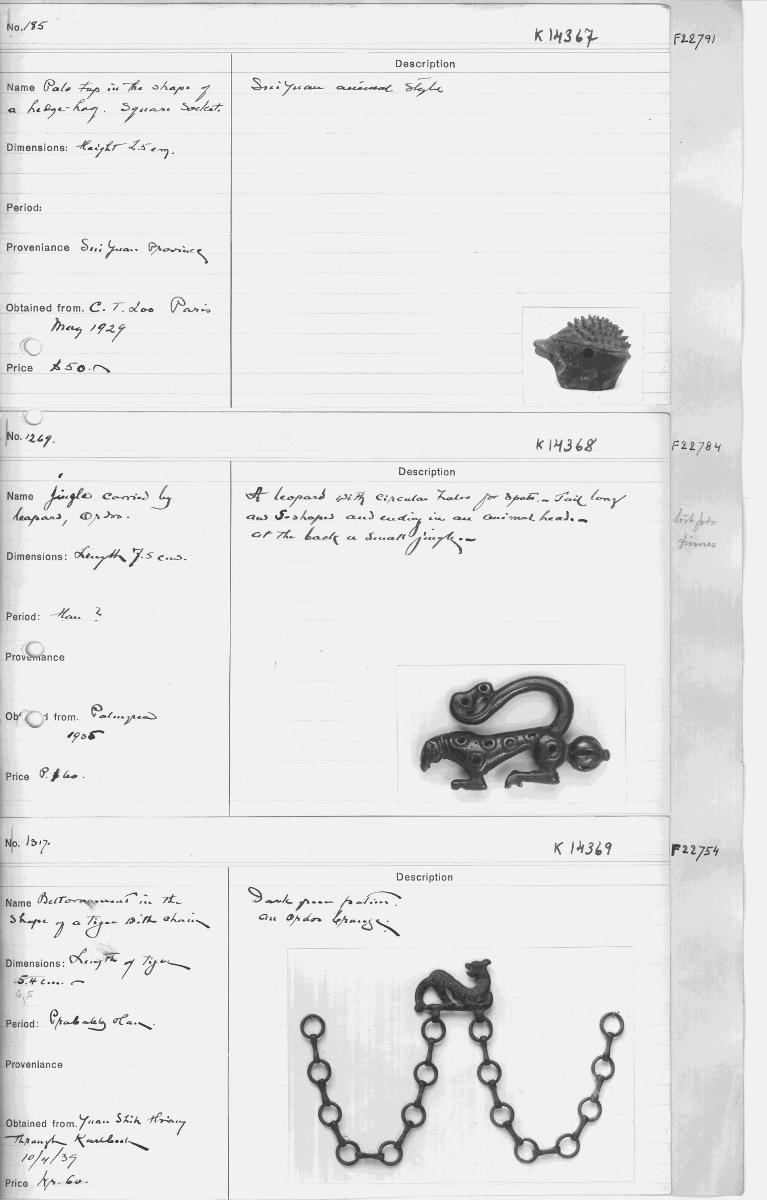 No. 185
K 14367
F22791
Description
Name Pole top in the shape of
a hedge-hog. Square Socket.
Sui Yuan animal style
Dimensions: Height 2.5 cm.
Period:
Proveniance Sui Yuan Province
Obtained from. C. T. Loo Paris
May 1929
Price $50.-
No. 1269.
K 14368
F22784
Description
Name Jingle carried by
leopard, Ordos.
A leopard with circular holes for spots. - Tail long
and S-shaped and ending in an animal head. -
At the back a small jingle. -
Dimensions: Length 7.5 cms.
Period: Han ?
Proveniance
Obt d from. Palmgren
1935
Price P. $60.
No. 1317.
K 14369
F22754
Description
Name Belt ornament in the
shape of a tiger with chain
Dark green patina.
an Ordos bronze.
Dimensions: Length of tiger
5.4 cm. -
6,5
Period: Probably Han.
Proveniance
Obtained from. Yuan Shih
Through Karlbeck
10/4/39
Price Kr. 60.-